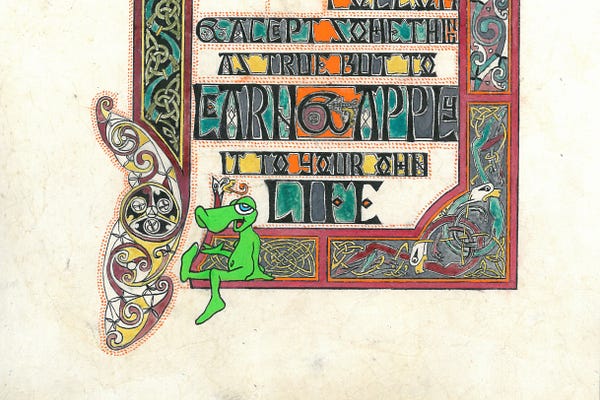 & ACEPT SOMETHIN
AS TRUE BUT TO
LEARN & APPLY
IT TO YOUR OWN
LIFE